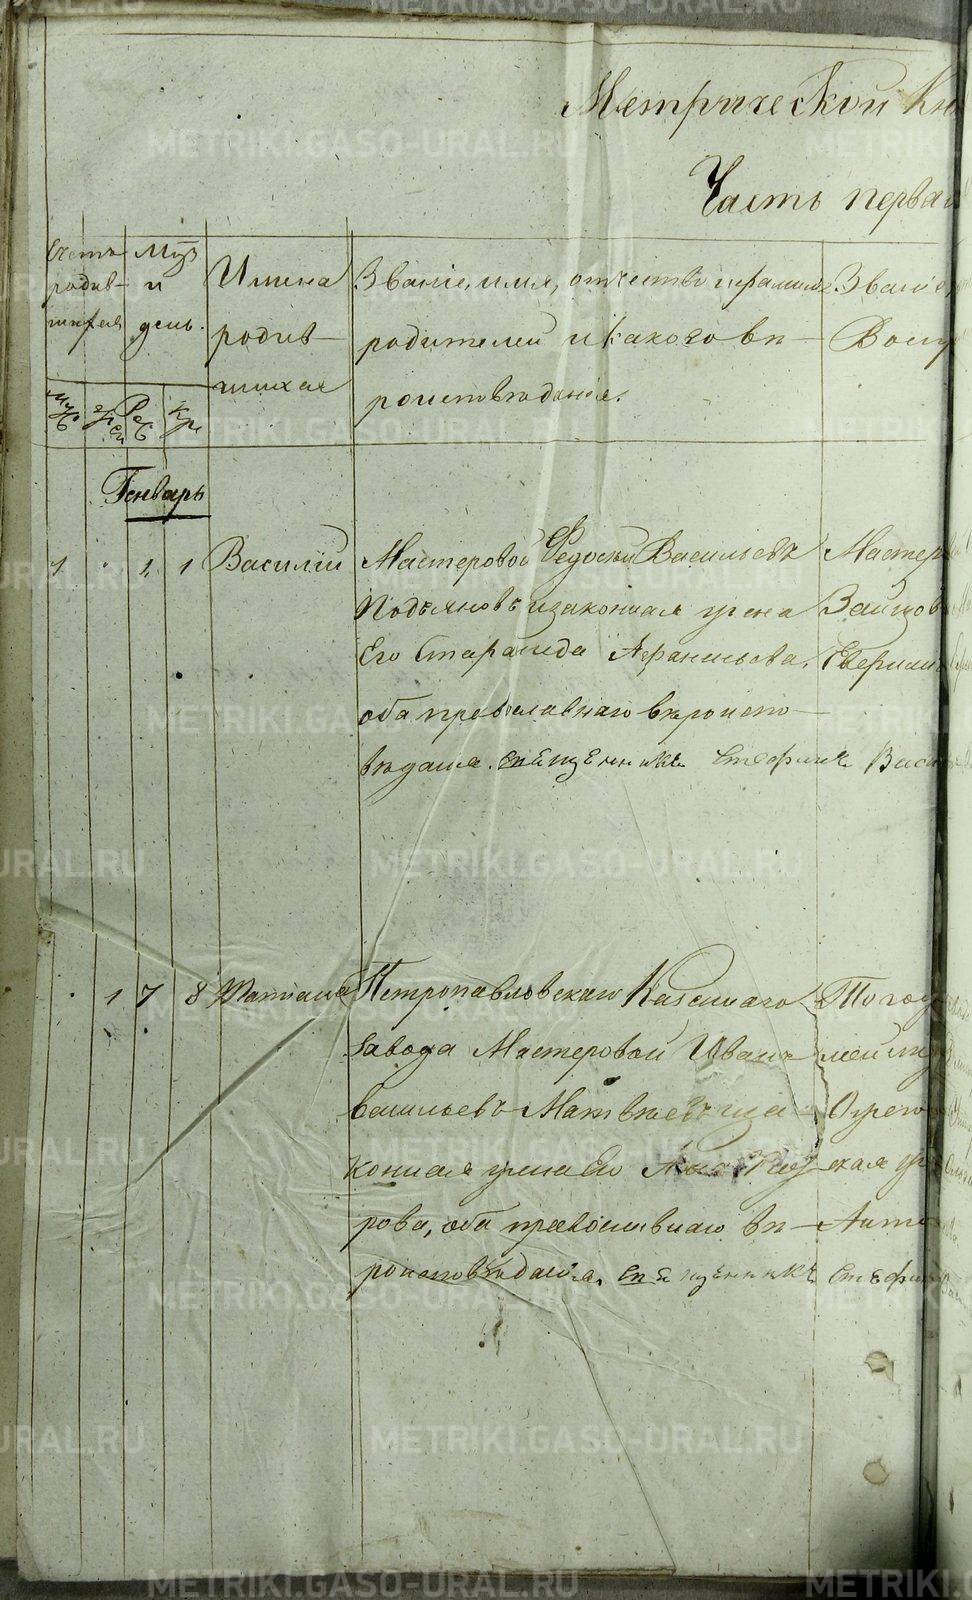 Метрической Кн
Часть первая
Счетъ родив- шихся
Мцъ и день.
Имена родив- шихся
Званіе, имя, отчество и фамилія родителей и какого вѣ- роисповѣданія.
Званіе,
Восп
Муж
Жен
Рож
Кре
Генварь
1 1 1 Василій
Мастеровой Федосѣй Васильевъ
Мастер
Подъяновъ и законная жена
Зайцов
Его Стараида Афаньсьова,
оба православнаго вѣроиспо-
вѣдания. Священникъ Стефанъ Васи
1 7 8 Татиана
Петропавловскаго Казеннаго
Того
завода Мастеровой Иванъ
Васильевъ Матвѣевъ и за-
конная жена Его
ская
рова, оба православнаго вѣ-
роисповѣдания. Священникъ Стефан
METRIKI.GASO-URAL.RU